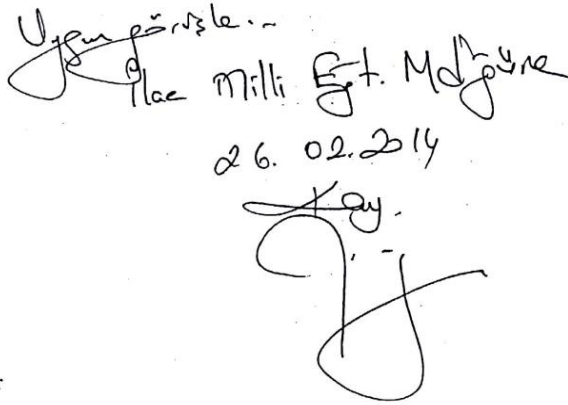 Uygun görüşle..
İlçe Milli Eğt. Mdğüne
26.02.2014
Kay.